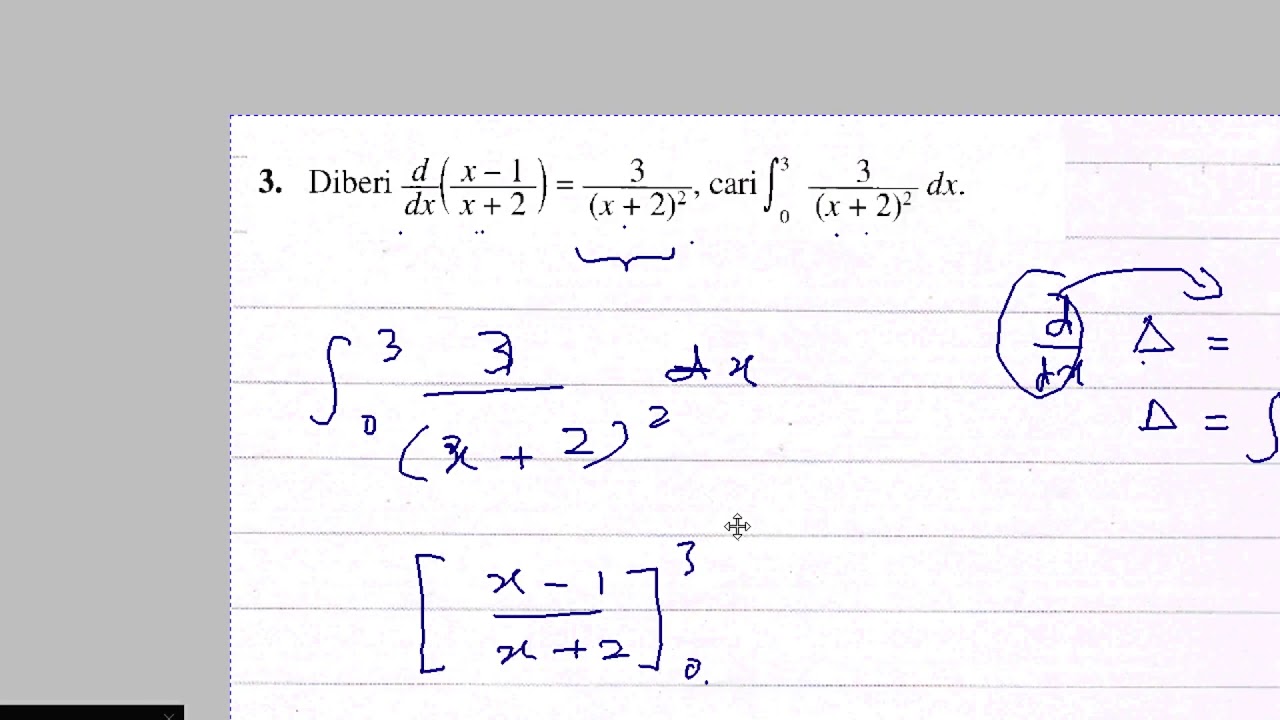 3. Diberi d/dx((x − 1)/(x + 2)) = 3/(x + 2)², cari ∫₀³ 3/(x + 2)² dx.
∫₀³ 3/(x + 2)² dx
d/dx Δ =
Δ = ∫
[(x − 1)/(x + 2)]₀³